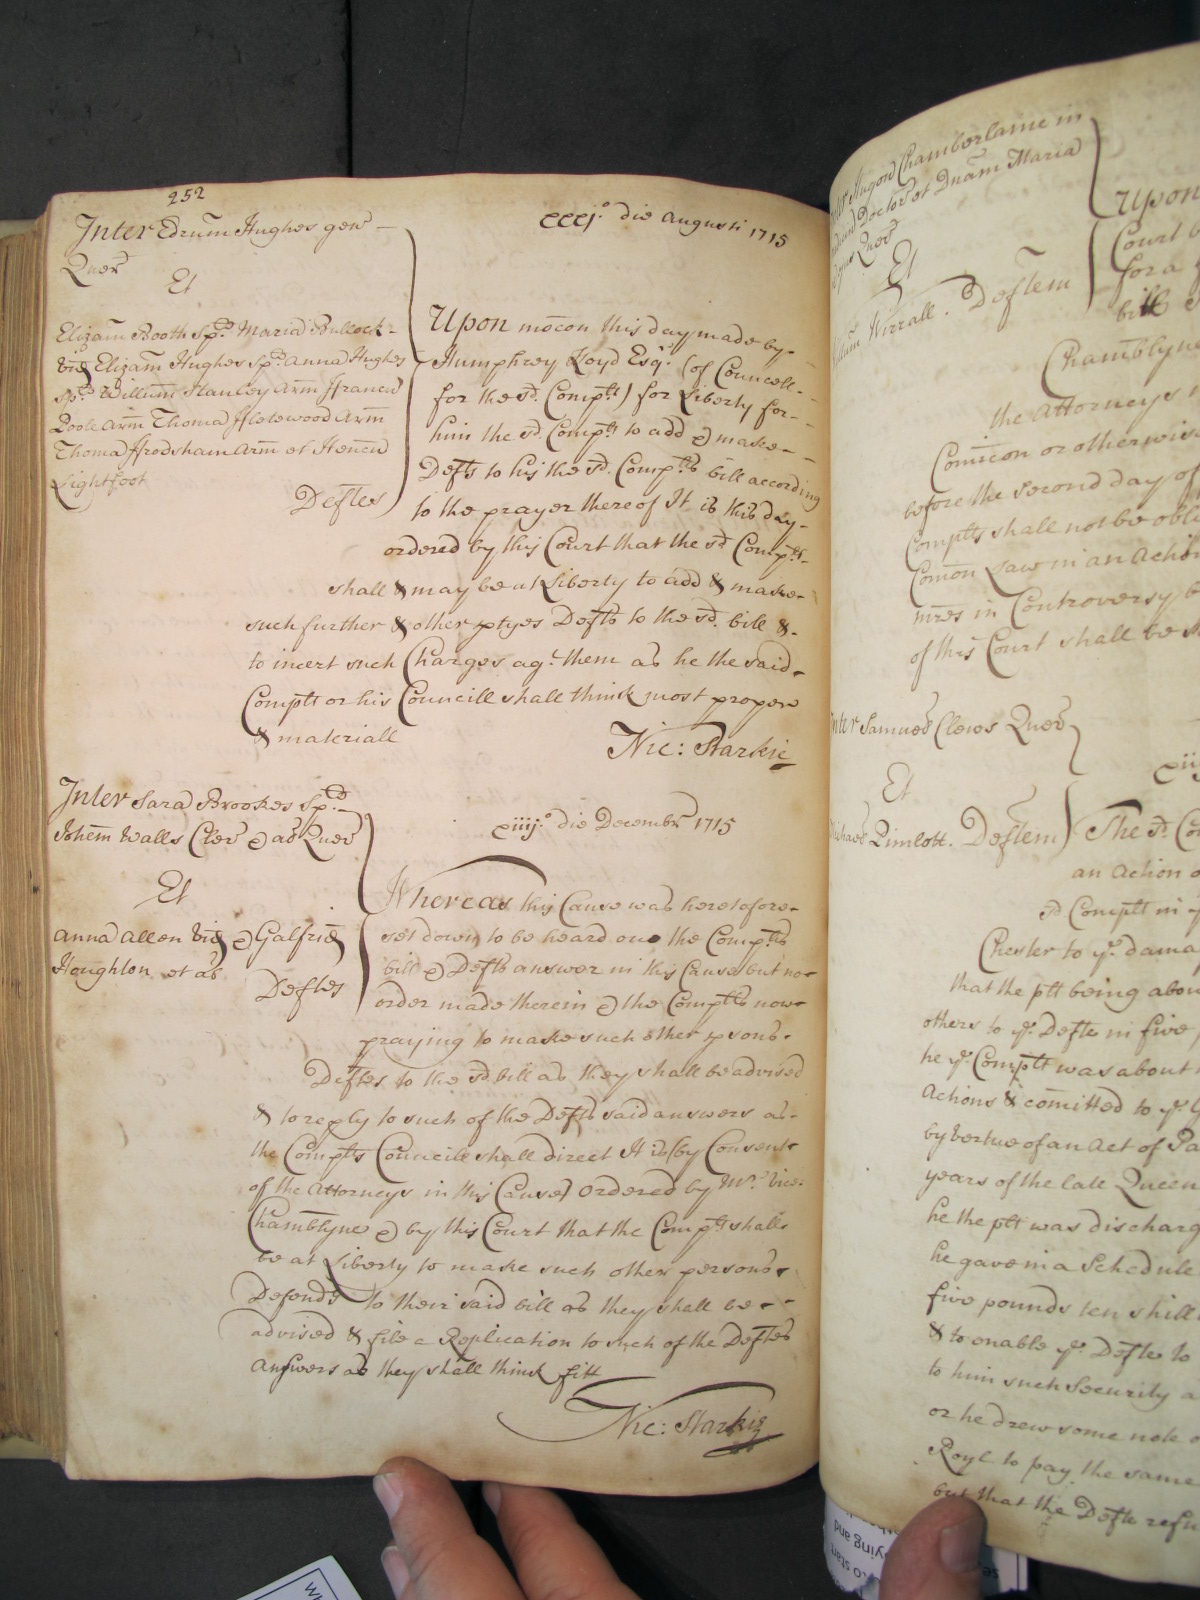 252
Inter Edrum Hughes gen
Quer
Et
Elizam Booth Sp. Maria Bullock
vid Elizam Hughes Sp. Anna Hughes
Sp. Willum Stanley Arm ffrancis
Poole Arm Thoma ffletewood Arm
Thoma ffrodsham Arm et Henric
Lightfoot
Deftes
die Augusti 1715
Upon mocon this day made by
Humphrey Lloyd Esqr. (of Councell
for the sd. Complt) for Liberty for
him the sd. Complt to add & make
Defts to his the sd. Complts bill according
to the prayer thereof It is this day
ordered by this Court that the sd Complt
shall & may be at Liberty to add & make
such further & other ptyes Defts to the sd. bill &
to incert such Charges agt. them as he the said
Complt or his Councill shall think most proper
& materiall
Nic: Starkie
Inter Sara Brookes Sp.
Johem Walls Cler & als Quer
Et
Anna Allen vid & Galfrid
Houghton et als
Deftes
xiiij.o die Decembr 1715
Whereas this Cause was heretofore
set down to be heard on the Complts
bill & Defts answer in this Cause but no
order made therein & the Complts now
praying to make such other psons
Deftes to the sd bill as they shall be advised
& to reply to such of the Defts said answers as
the Complts Councill shall direct It is (by Consent
of the Attorneys in this Cause) ordered by Mr. Vice
Chamblyne & by this Court that the Complts shall
be at Liberty to make such other persons
Defends to their said bill as they shall be
advised & file a Replication to such of the Deftes
answers as they shall think fitt
Nic: Starkie
Hugon Chamberlaine in
Doctor et Dnam Maria
Quer
Et
Wirrall. Deftem
Upon
Court
for a
bill
Chamblyne
the Attorneys
Comicon or otherwise
before the second day of
Complts shall not be
Comon Law in an Action
in Controversy
of this Court shall be
Inter Samuel Clewes Quer
Et
Pimlott. Deftem
The sd. Co
an Action
sd Complt in
Chester to ye. dama
that the plt being abou
others to ye. Defte in five
he ye. Complt was about
Actions & comitted to ye.
by vertue of an Act of Pa
years of the late Queen
he the plt was discharg
he gave in a Schedule
five pounds ten shill
& to enable ye. Defte to
to him such Security
or he drew some note
Royl to pay the same
but that the Defte refu